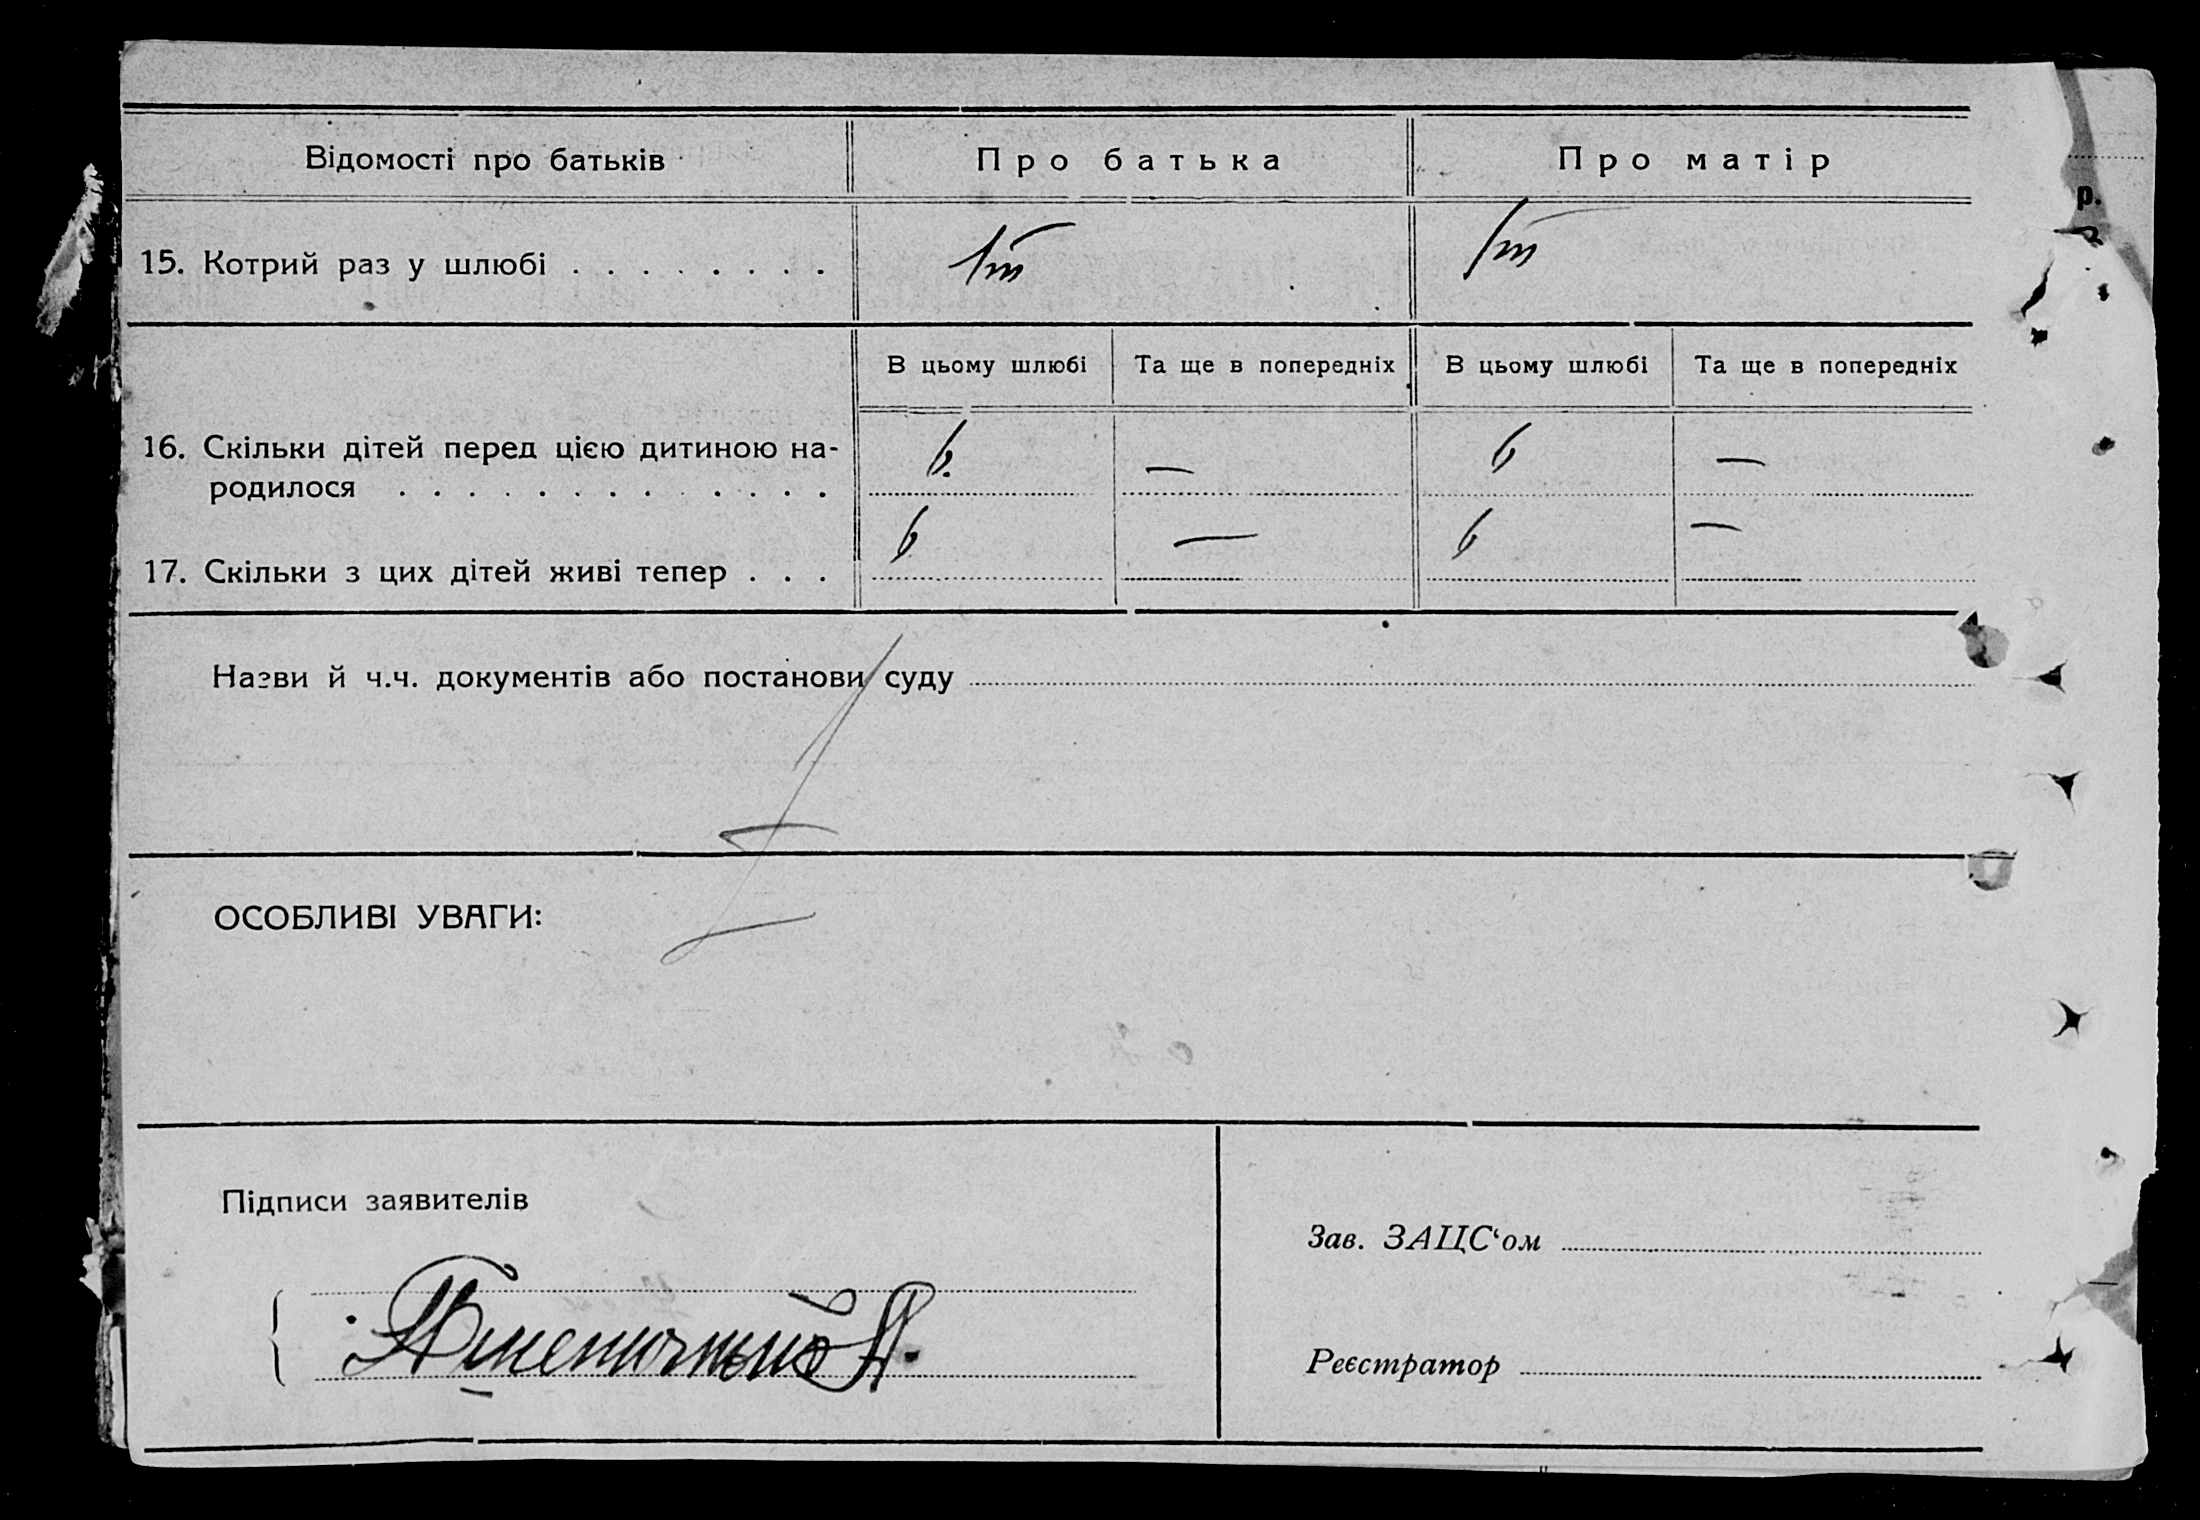 Відомості про батьків Про батька Про матір
15. Котрий раз у шлюбі . . . . . . . . 1й 1й
В цьому шлюбі Та ще в попередніх В цьому шлюбі Та ще в попередніх
16. Скільки дітей перед цією дитиною на-
родилося . . . . . . . . . . . . . 6. — 6 —
17. Скільки з цих дітей живі тепер . . . 6 — 6 —
Назви й ч.ч. документів або постанови суду
ОСОБЛИВІ УВАГИ:
Підписи заявителів
Зав. ЗАЦС‘ом
Пшеничный
Реєстратор
р.